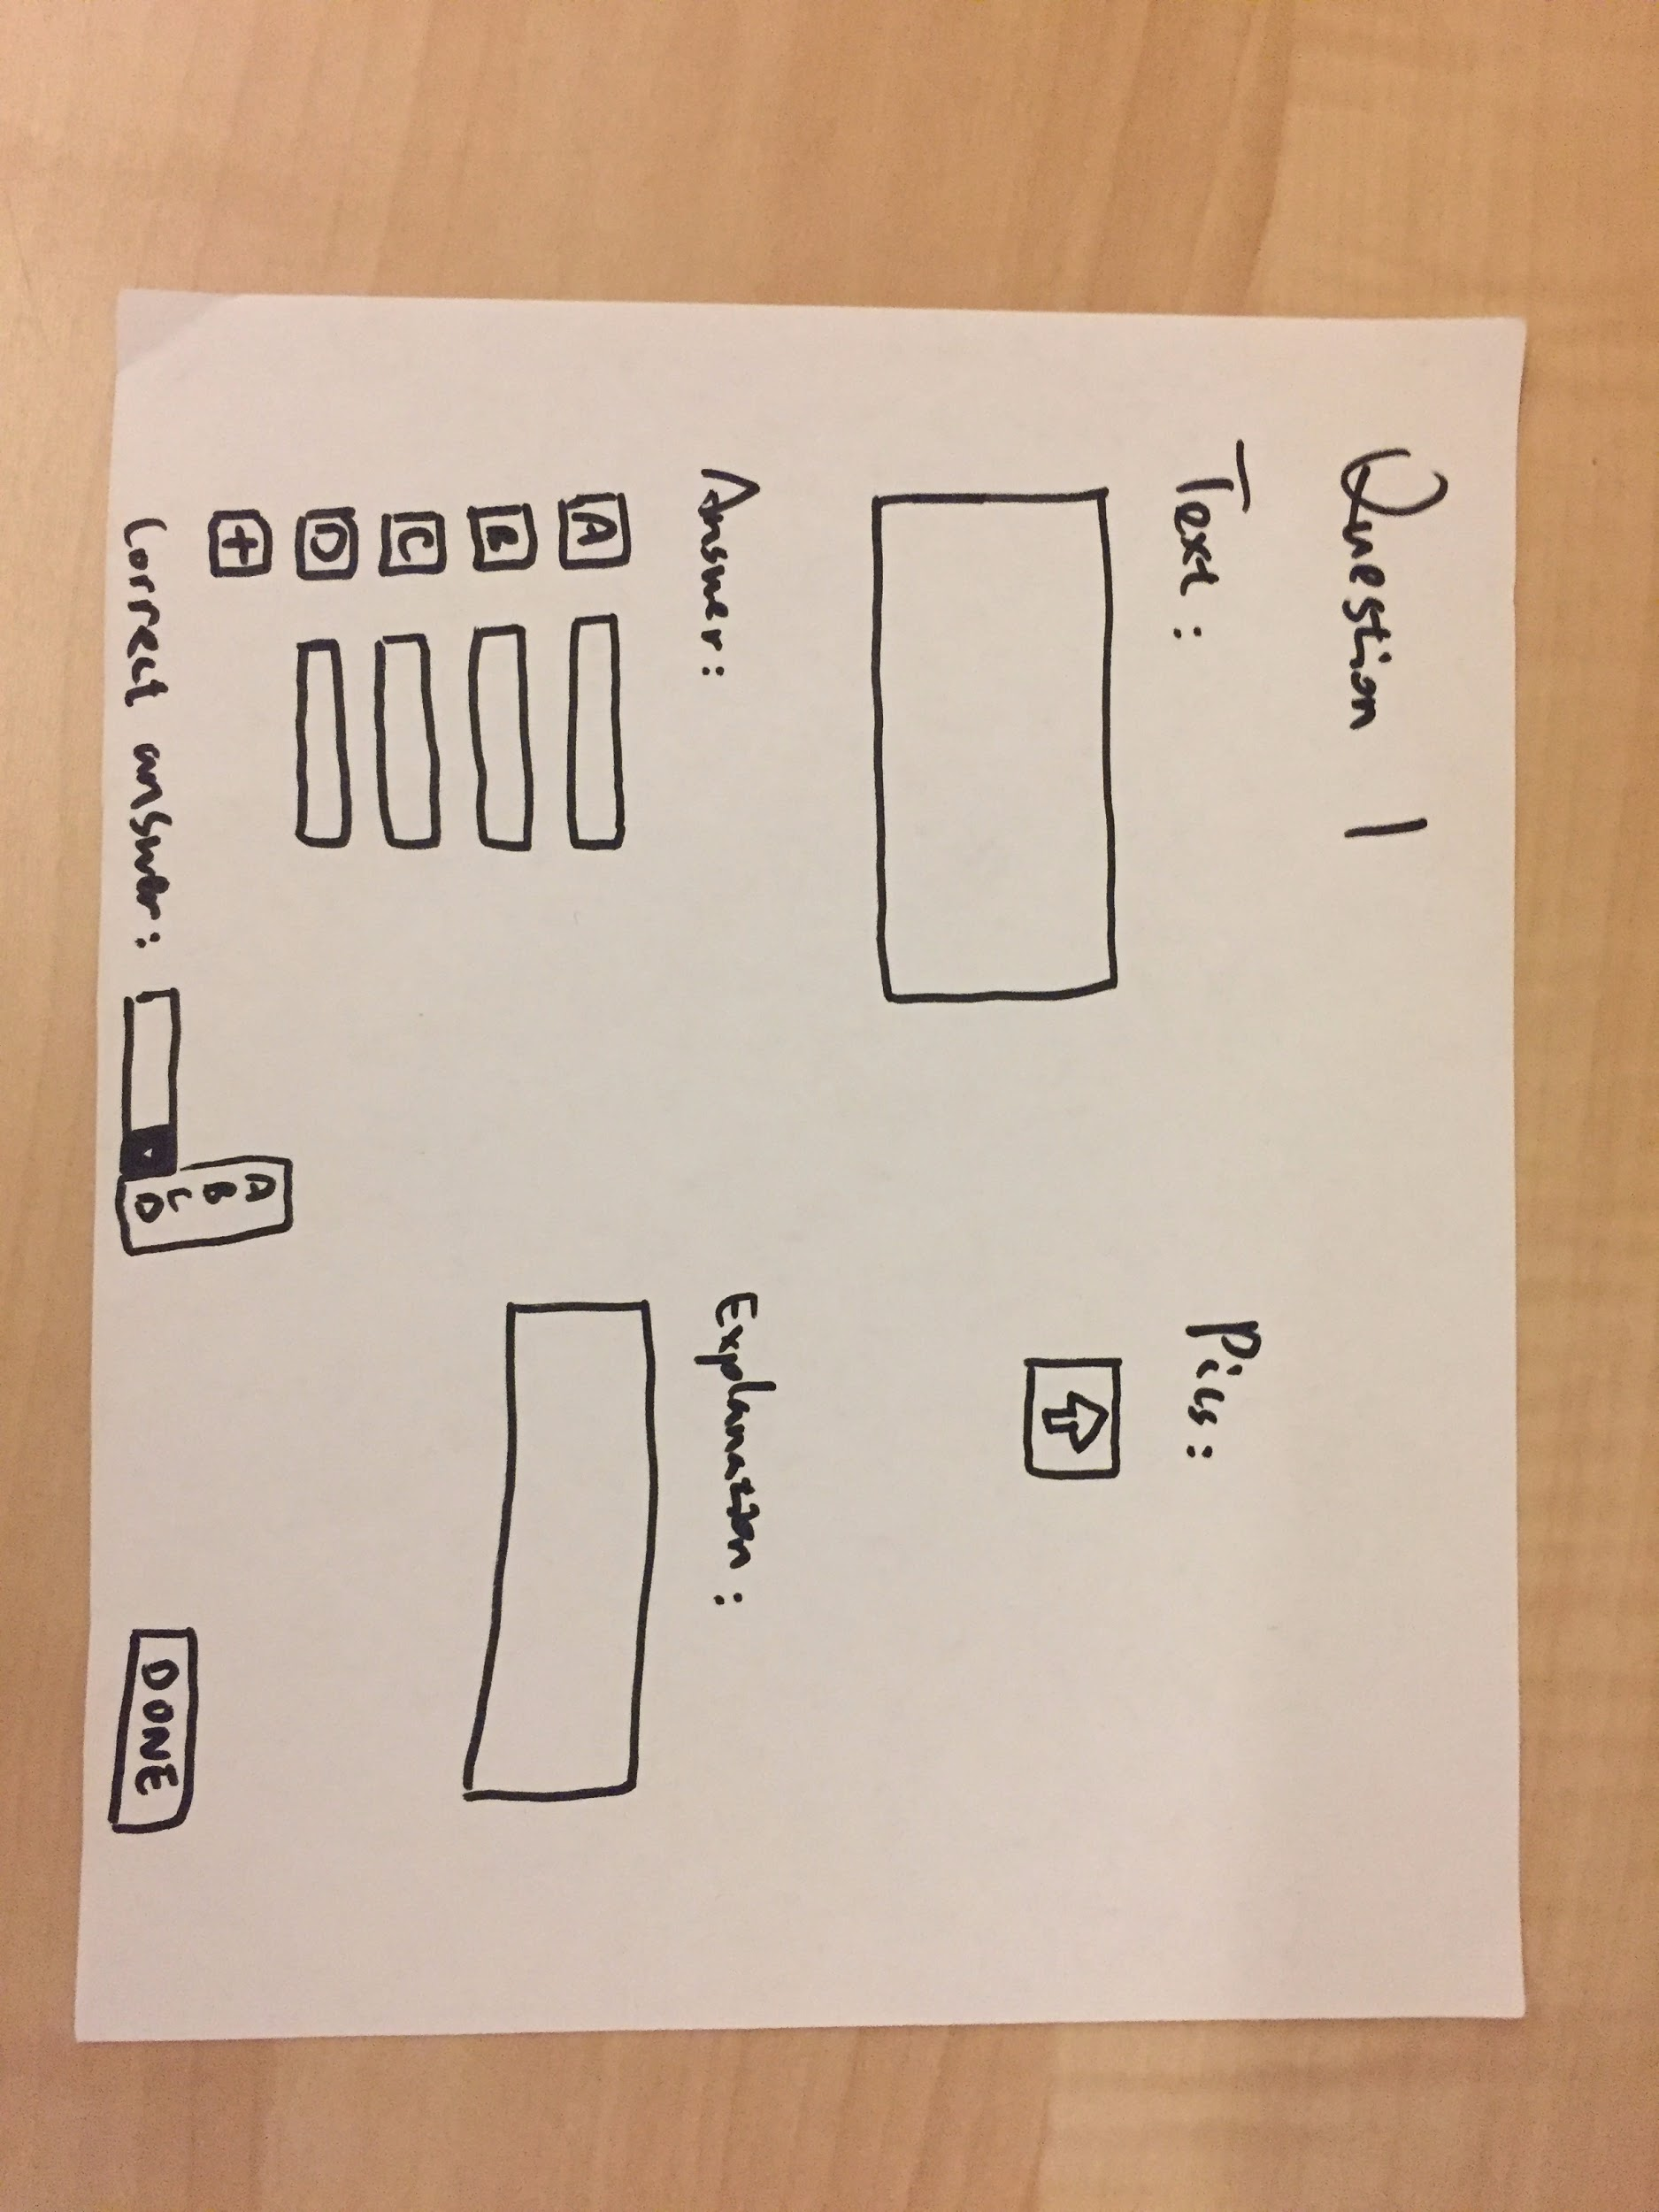 Question 1
Text:
Pics:
Answer:
Explanation:
A
B
C
D
+
Correct answer:
A
B
C
D
DONE